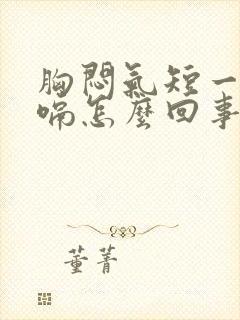 胸悶氣短一
喘怎麼回事
董菁